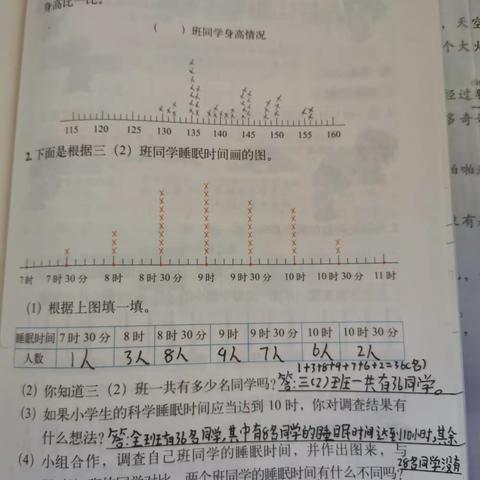 身高比一比。
（ ）班同学身高情况
115 120 125 130 135 140 145 150 155 160
2.下面是根据三（2）班同学睡眠时间画的图。
7时 7时30分 8时 8时30分 9时 9时30分 10时 10时30分 11时
（1）根据上图填一填。
睡眠时间 7时30分 8时 8时30分 9时 9时30分 10时 10时30分
人数 1人 3人 8人 9人 7人 6人 2人
1+3+8+9+7+6+2=36(名)
（2）你知道三（2）班一共有多少名同学吗？答:三(2)班一共有36同学。
（3）如果小学生的科学睡眠时间应当达到 10 时，你对调查结果有
什么想法？答:全班有36名同学,其中有8名同学的睡眠时间达到10小时,其余
（4）小组合作，调查自己班同学的睡眠时间，并作出图来，与
28名同学没有
两个班同学的睡眠时间有什么不同吗？
天空
个大
经过
多奇